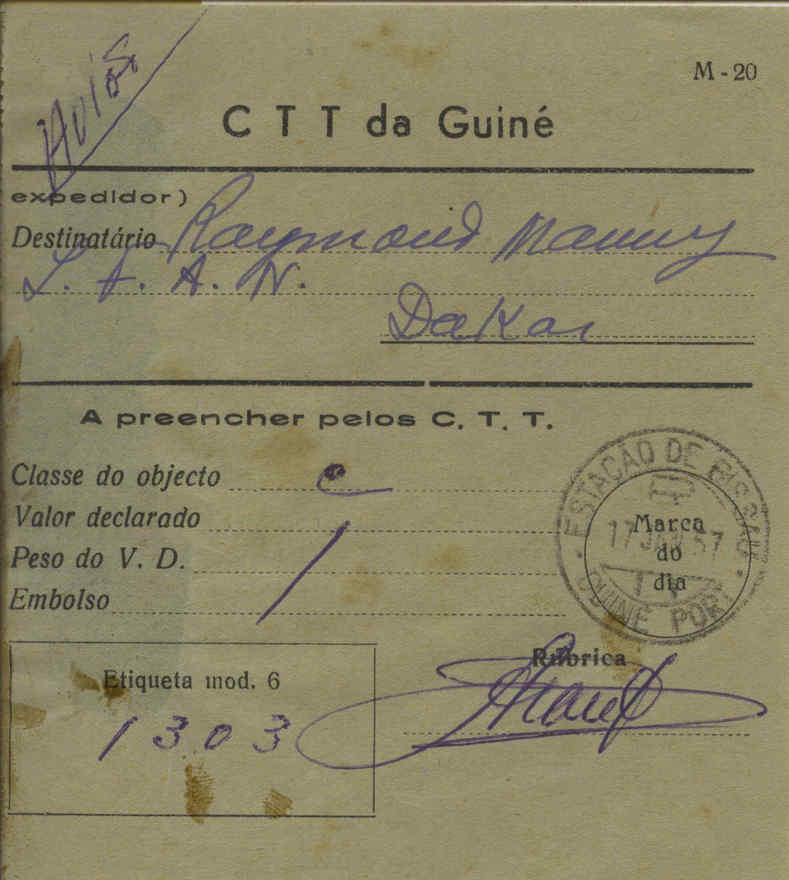 Avião
M - 20
C T T da Guiné
expedidor)
Destinatário Raymond Mauny
I. F. A. N.
Dakar
A preencher pelos C. T. T.
Classe do objecto c
Valor declarado
Peso do V. D.
Embolso
ESTAÇÃO DE BISSAU
17 JAN 57
GUINÉ PORT
Marca
do
dia
Rubrica
Etiqueta mod. 6
1303